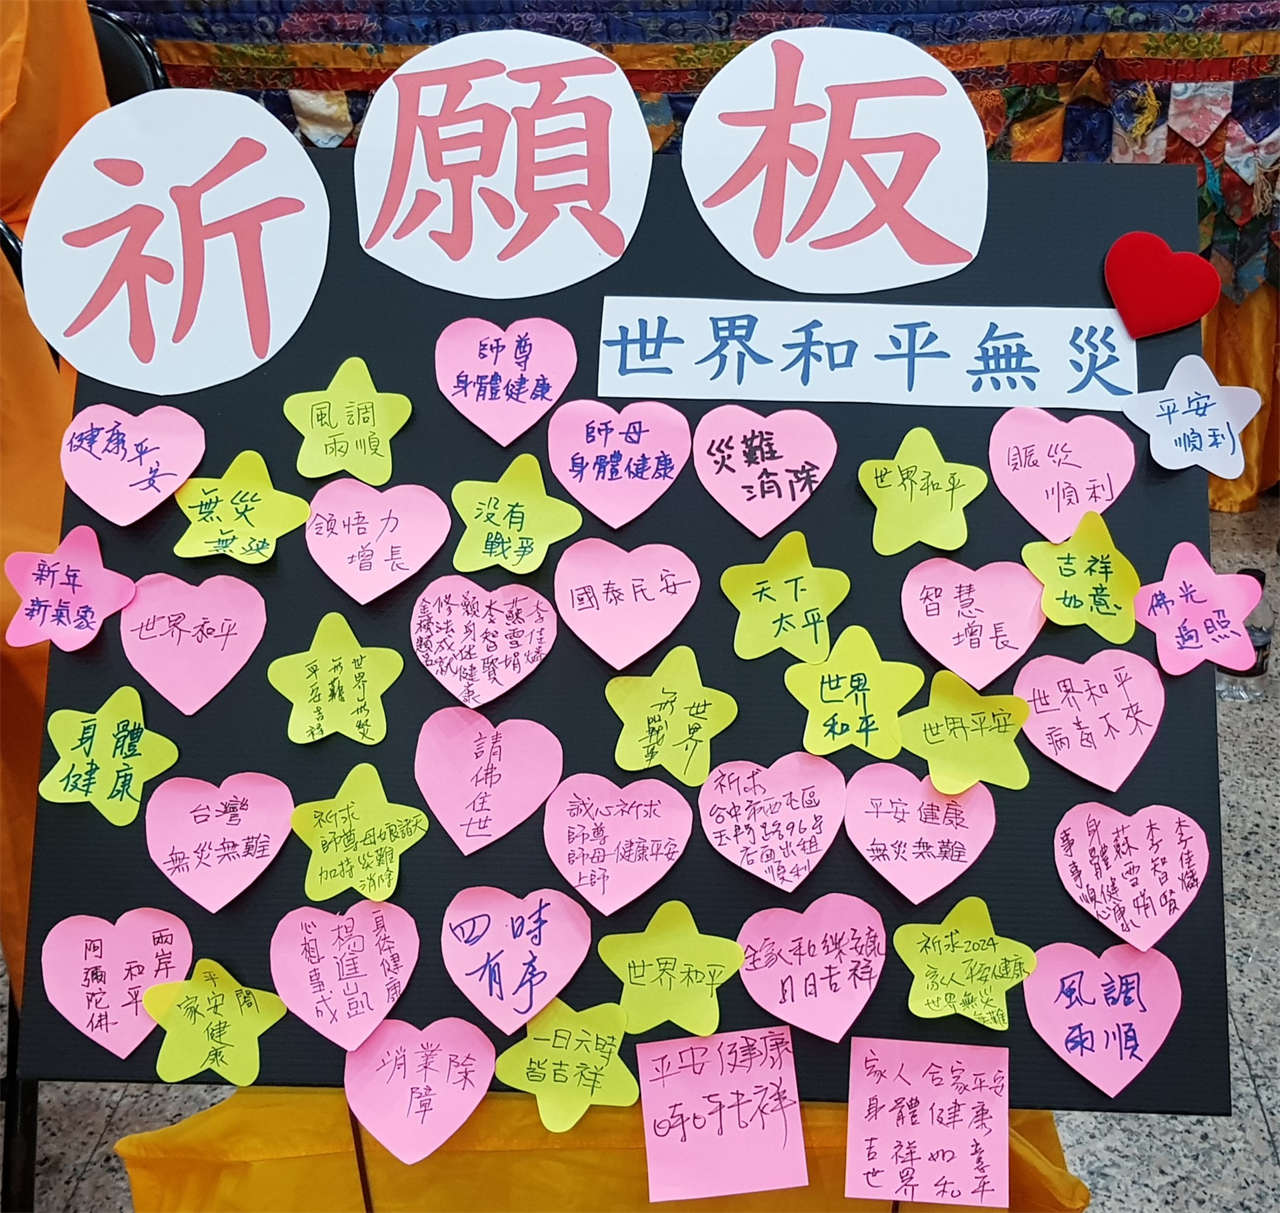 祈願板
世界和平無災
師尊
身體健康
風調
雨順
健康平
安
無災
無殃
領悟力
增長
沒有
戰爭
師母
身體健康
災難
消除
世界和平
賑災
順利
平安
順利
新年
新氣象
世界和平
國泰民安
天下
太平
智慧
增長
吉祥
如意
佛光
遍照
李佳燐
蘇雪娟
李智賢
身健康
修法成就
金榜題名
世界無災
無難
平安吉祥
世界
無戰爭
世界
和平
世界平安
世界和平
病毒不來
身體
健康
台灣
無災無難
請佛住世
祈求
師尊母娘諸天
加持災難
消除
誠心祈求
師尊
師母一健康平安
上師
祈求
台中市西屯區
96号
店面出租
順利
平安健康
無災無難
李佳燐
李智賢
蘇雪娟
身體健康
事事順心
兩岸
和平
阿彌陀佛
平安
家 閤
健康
身体健康
楊進山凱
心想事成
四時
有序
世界和平
全家和樂安康
月日吉祥
祈求2024
家人平安健康
世界無災
無難
風調
雨順
消業除
障
一日六時
皆吉祥
平安健康
時時吉祥
家人合家平安
身體健康
吉祥如意
世界和平